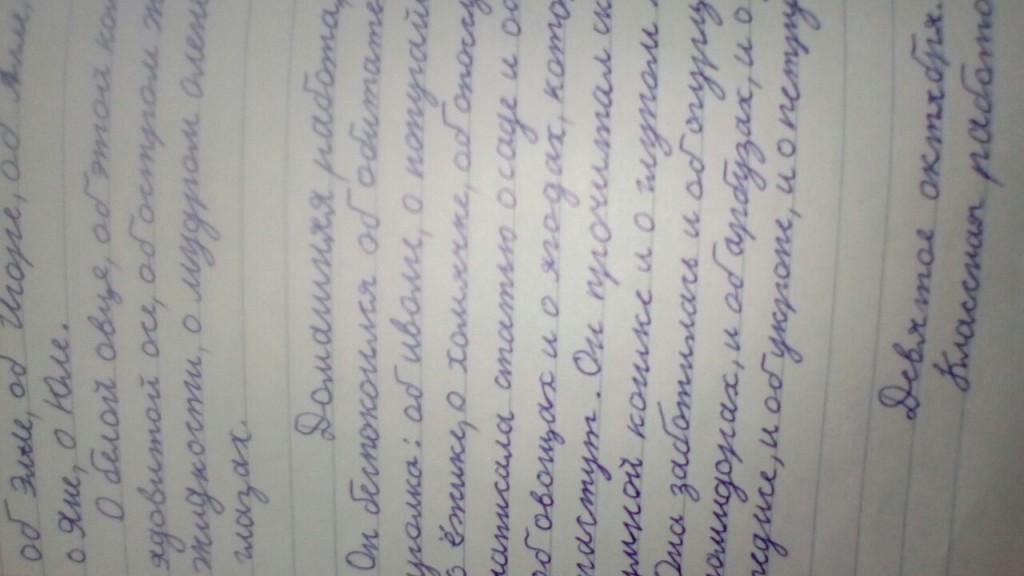 об Эмме, об Игоре, об Яне,
о Яне, о Юле.
О белой овце, об этой
ядовитой осе, об остром
жидкости, о мудром олене
глазах.
Домашняя работа,
Он беспокоился об обитате
уголка: об иволге, о попугай
ёжике, о хомяке,
написала статью о саде и
об овощах и о ягодах, кото
растут. Он прочитал
умной кошке и о глупом
Она заботилась и об огурц
помидорах, и об арбузах, и о
и об укропе, и о пету
Девятое октября.
Классная работа